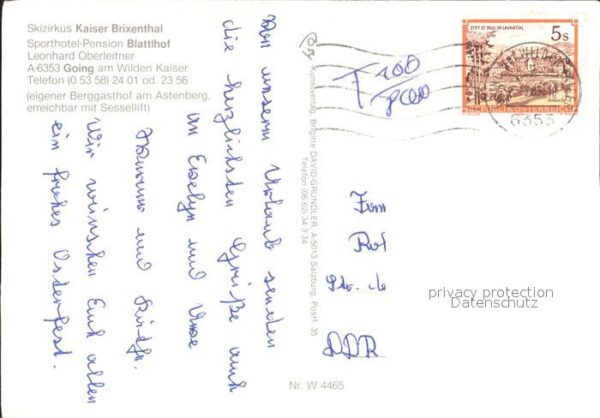 Skizirkus Kaiser Brixenthal
Sporthotel-Pension Blattlhof
Leonhard Oberleitner
A-6353 Going am Wilden Kaiser
Telefon (0 53 58) 24 01 od. 23 56
(eigener Berggasthof am Astenberg,
erreichbar mit Sessellift)
Von unserem Urlaub senden
die herzlichsten Grüße auch
an Evelyn und Uwe
und
Wir wünschen Euch allen
ein frohes Osterfest.
Kunstverlag Brigitte DAVID-GRÜNDLER, A-5013 Salzburg, Postf. 35
Telefon (06 62) 34 3 34
T 200
STIFT ST. PAUL IM LAVANTTAL
5 S
REPUBLIK ÖSTERREICH
6353
Fam
DDR
privacy protection
Datenschutz
Nr. W 4465